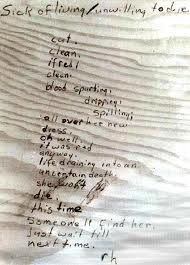 Sick of living/unwilling to die
cut.
clean.
if red!
clean.
blood spurting;
dripping;
spilling;
all over her new
dress.
oh well
it was red
anyway.
life draining into an
uncertain death.
she won't
die.
this time
someone'll find her.
just wait till
next time.
rh